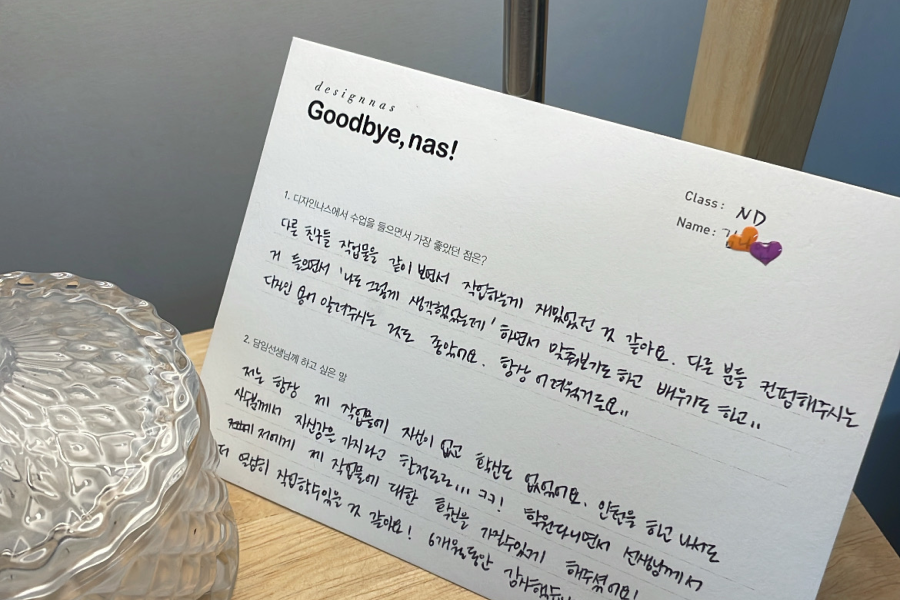 designnas
Goodbye, nas!
Class: ND
Name: 김
1. 디자인나스에서 수업을 들으면서 가장 좋았던 점은?
다른 친구들 작업물을 같이 보면서 작업하는게 재밌었던 것 같아요. 다른 분들 컨펌해주시는
거 들으면서 '나도 그렇게 생각했었는데' 하면서 맞춰보기도 하고 배우기도 하고..
디자인 용어 알려주시는 것도 좋았어요. 항상 어려웠거든요..
2. 담임선생님께 하고 싶은 말
저는 항상 제 작업물에 자신이 없고 확신도 없었어요. 인턴을 하고 나서도
사수분께서 자신감을 가지라고 할정도로... ㅋㅋ! 학원다니면서 선생님께서
저에게 제 작업물에 대한 확신을 가질수있게 해주셨어요!
더 열심히 작업할수있을 것 같아요! 6개월동안